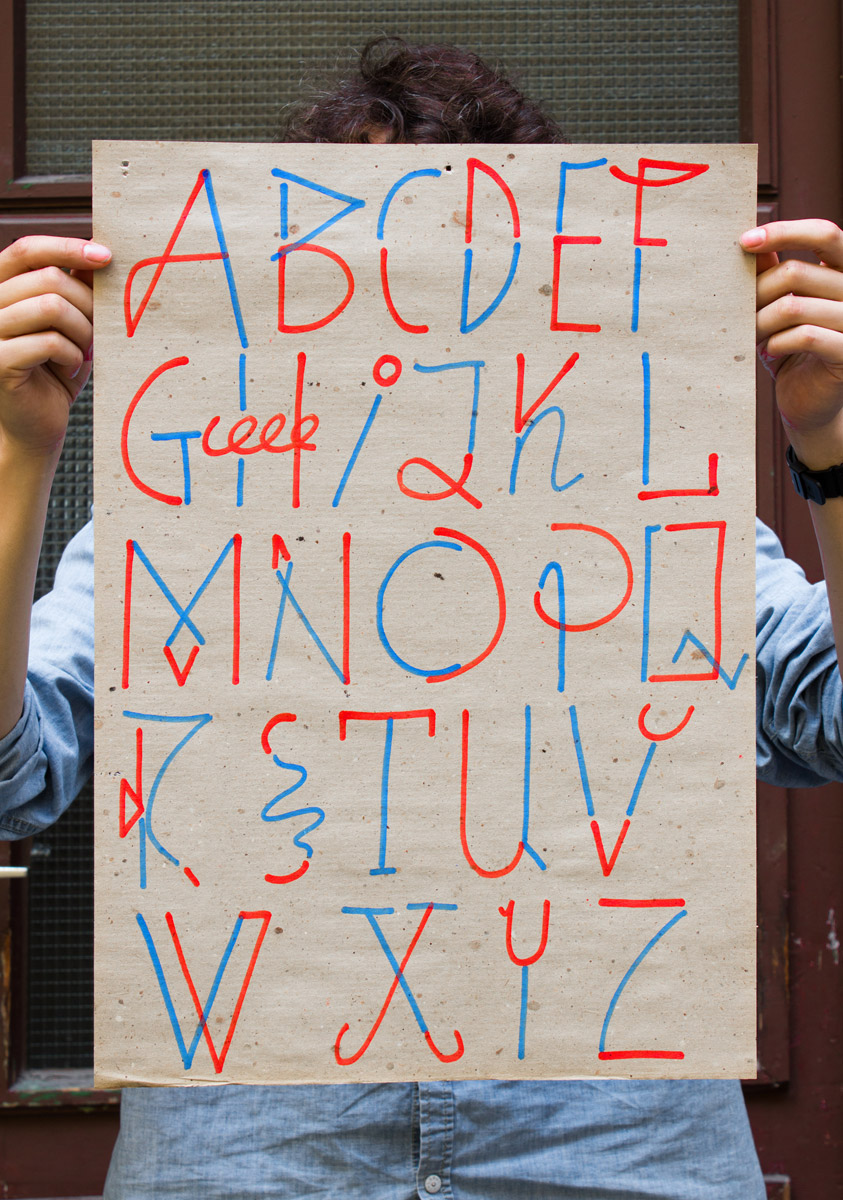 ABCDEF
GHiJKL
MNOPQ
RSTUV
WXYZ